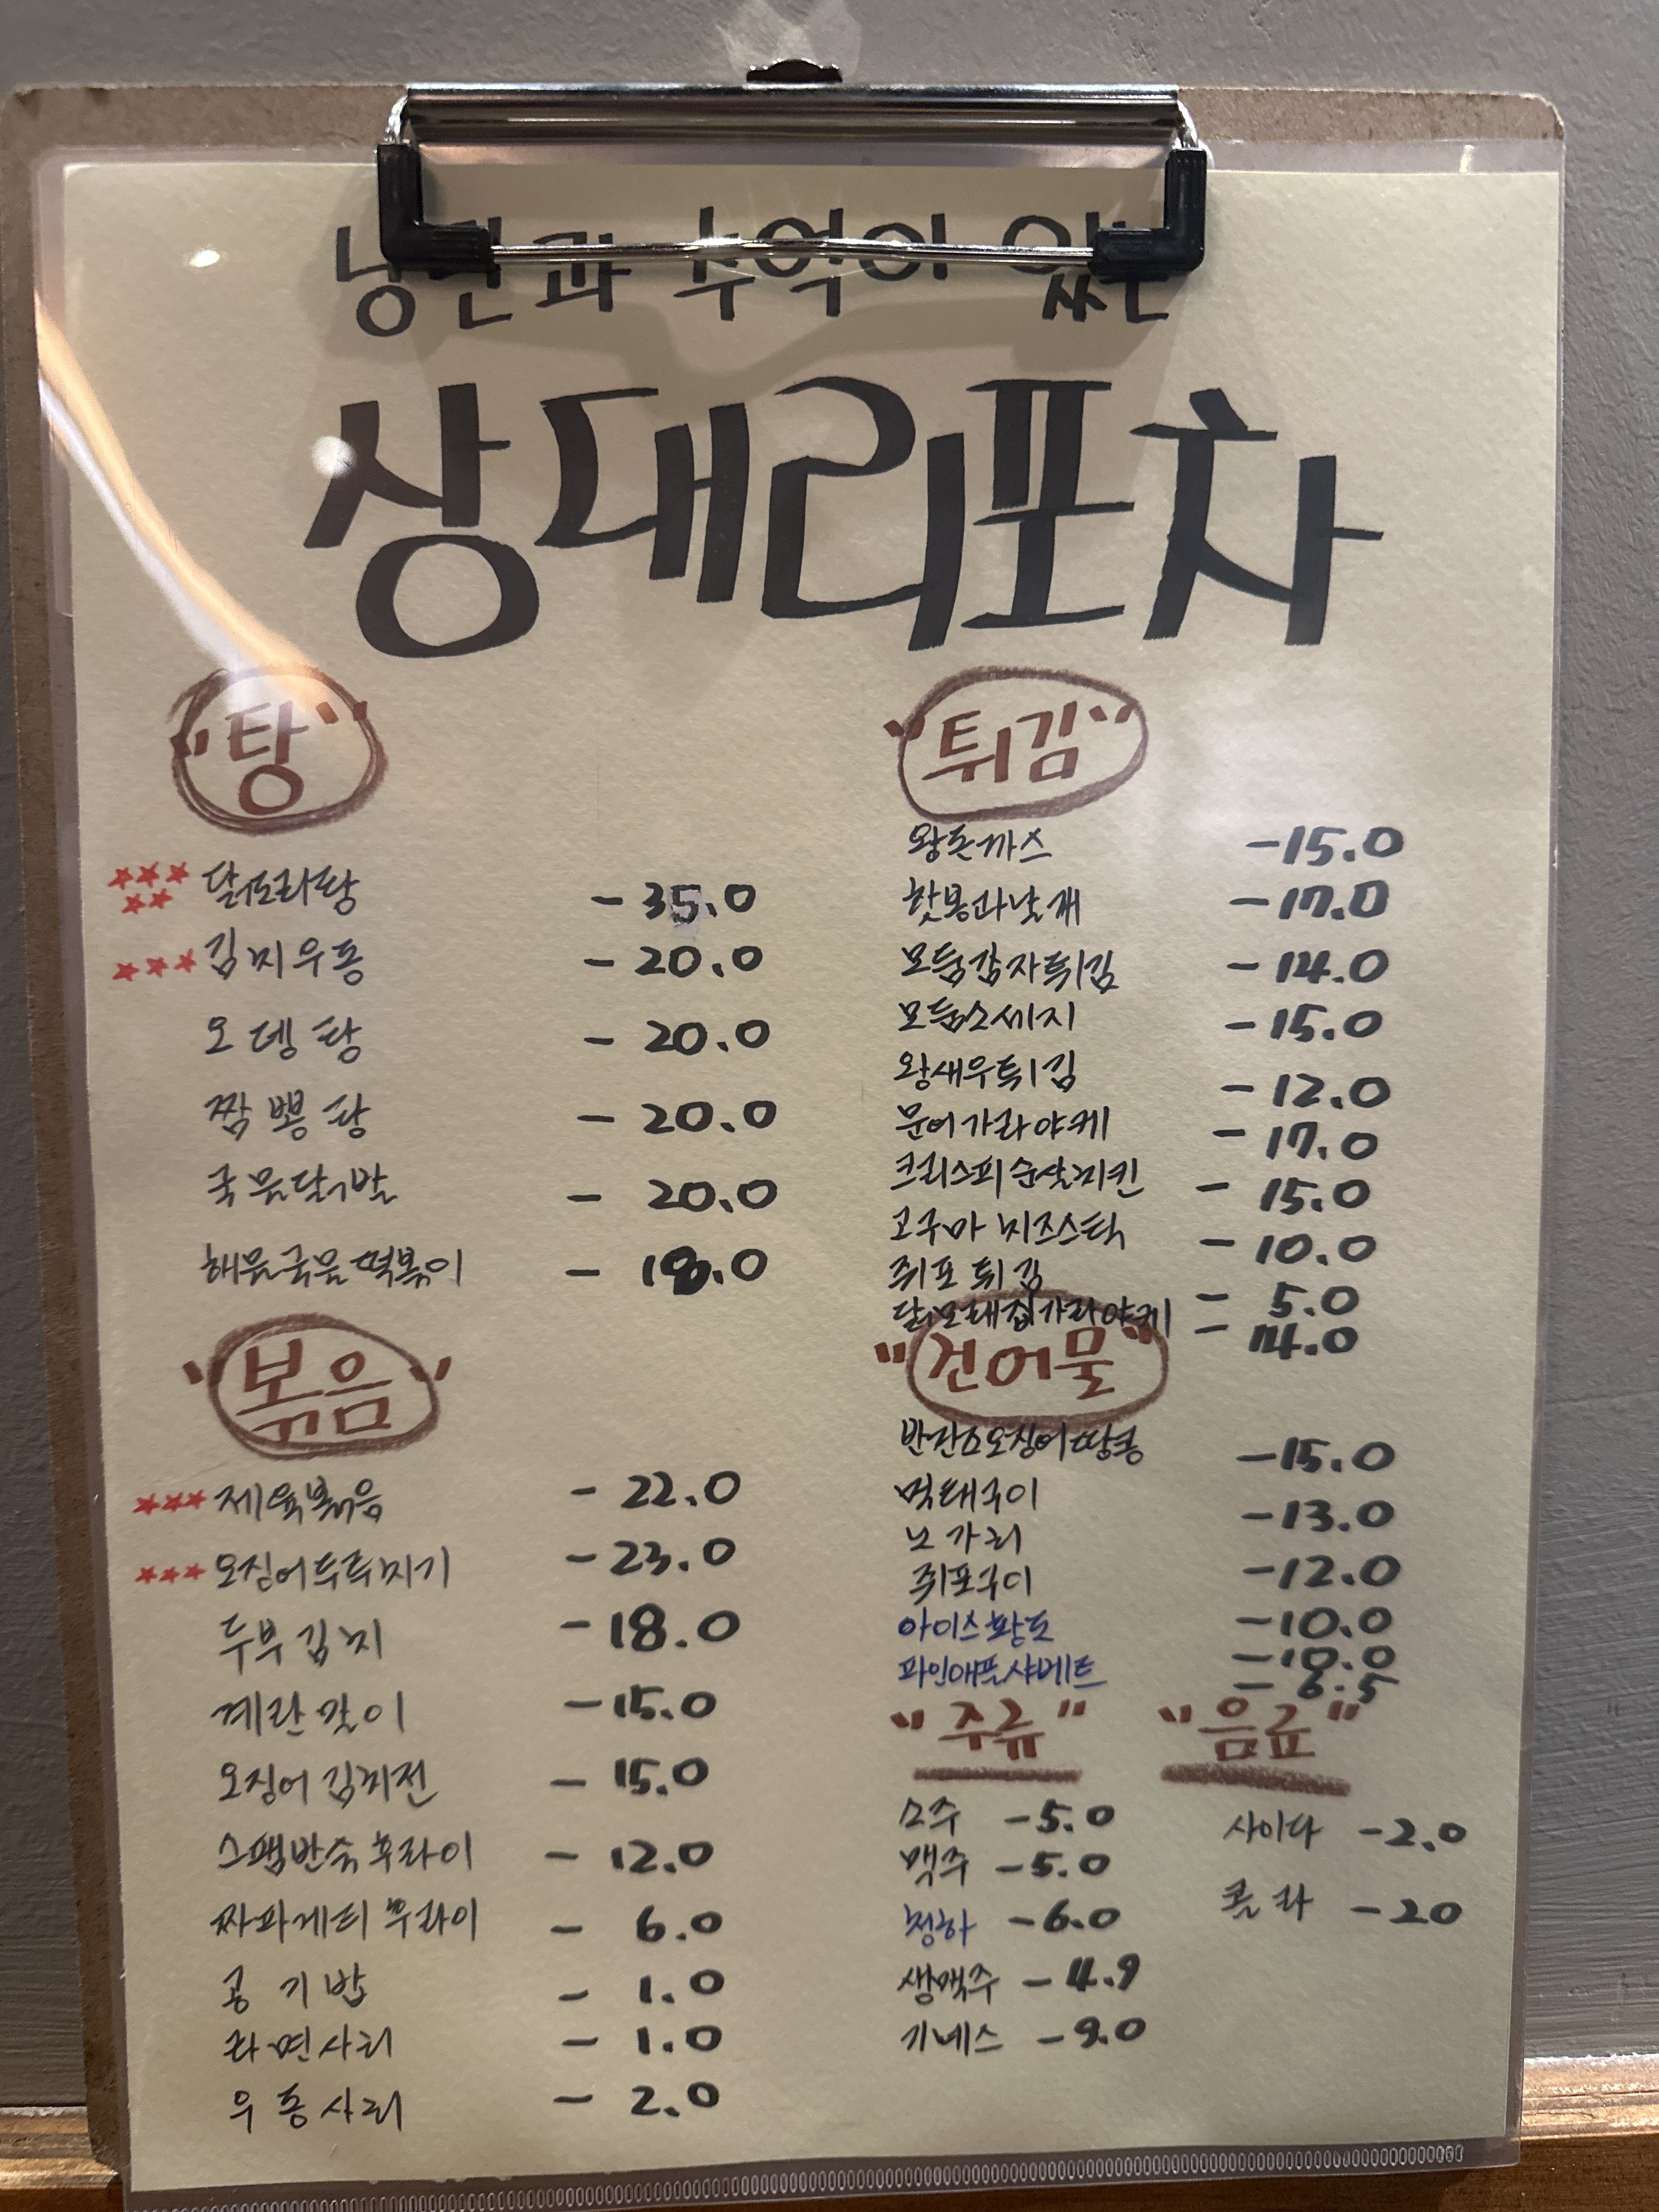 낭만과 추억이 있는
상대리포차
"탕"
닭도리탕 - 35.0
김치우동 - 20.0
오뎅탕 - 20.0
짬뽕탕 - 20.0
국물닭발 - 20.0
해물국물떡볶이 - 18.0
"볶음"
제육볶음 - 22.0
오징어두루치기 - 23.0
두부김치 - 18.0
계란말이 - 15.0
오징어김치전 - 15.0
스팸반숙후라이 - 12.0
짜파게티후라이 - 6.0
공기밥 - 1.0
라면사리 - 1.0
우동사리 - 2.0
"튀김"
왕돈까스 - 15.0
핫봉과날개 - 17.0
모듬감자튀김 - 14.0
모듬소세지 - 15.0
왕새우튀김 - 12.0
문어가라야케 - 17.0
크리스피순살치킨 - 15.0
고구마치즈스틱 - 10.0
쥐포튀김 - 5.0
닭모래집가라야케 - 14.0
"건어물"
반건오징어땅콩 - 15.0
먹태구이 - 13.0
노가리 - 12.0
쥐포구이 - 10.0
아이스황도 - 10.0
파인애플샤베트 - 8.5
"주류"
소주 - 5.0
맥주 - 5.0
청하 - 6.0
생맥주 - 4.9
기네스 - 9.0
"음료"
사이다 - 2.0
콜라 - 20